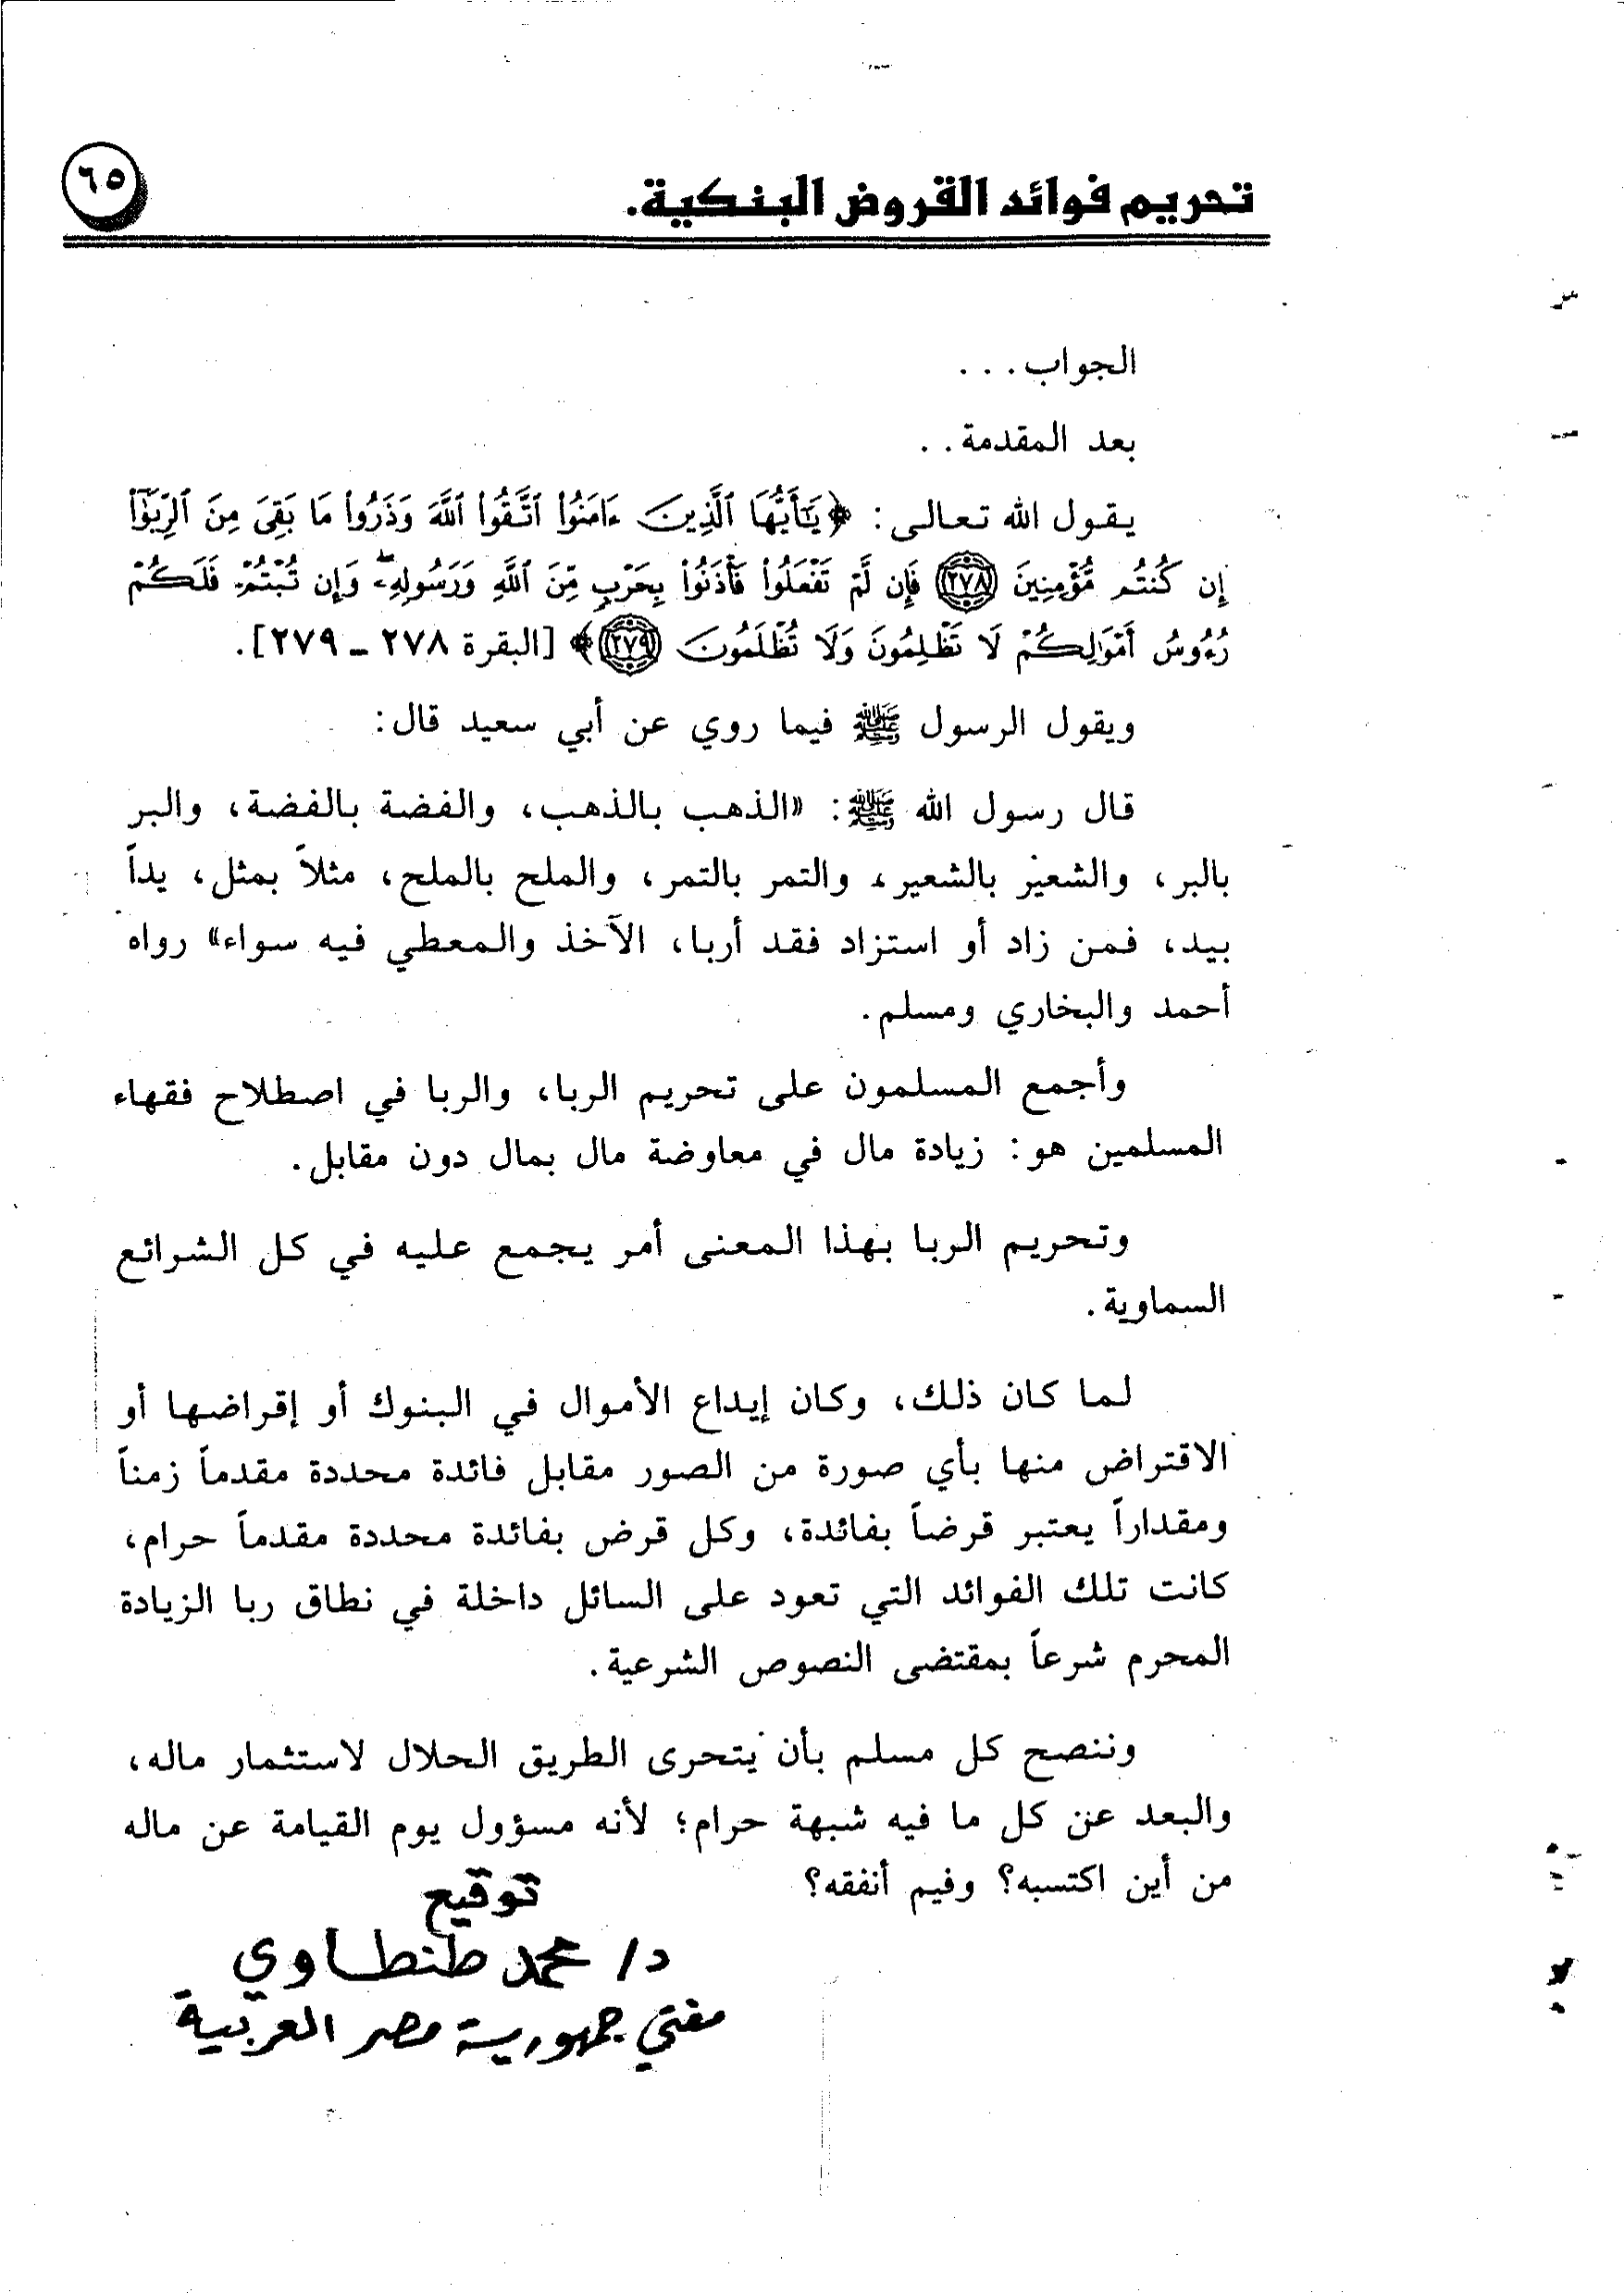 تحريم فوائد القروض البنكية.
٦٥
الجواب...
بعد المقدمة..
يقول الله تعالى: ﴿يَٰٓأَيُّهَا ٱلَّذِينَ ءَامَنُوا۟ ٱتَّقُوا۟ ٱللَّهَ وَذَرُوا۟ مَا بَقِىَ مِنَ ٱلرِّبَوٰٓا۟
إِن كُنتُم مُّؤْمِنِينَ ٢٧٨ فَإِن لَّمْ تَفْعَلُوا۟ فَأْذَنُوا۟ بِحَرْبٍ مِّنَ ٱللَّهِ وَرَسُولِهِۦ وَإِن تُبْتُمْ فَلَكُمْ
رُءُوسُ أَمْوَٰلِكُمْ لَا تَظْلِمُونَ وَلَا تُظْلَمُونَ ٢٧٩﴾ [البقرة ٢٧٨ ـ ٢٧٩].
ويقول الرسول ﷺ فيما روي عن أبي سعيد قال:
قال رسول الله ﷺ: «الذهب بالذهب، والفضة بالفضة، والبر
بالبر، والشعير بالشعير، والتمر بالتمر، والملح بالملح، مثلاً بمثل، يداً
بيد، فمن زاد أو استزاد فقد أربا، الآخذ والمعطي فيه سواء» رواه
أحمد والبخاري ومسلم.
وأجمع المسلمون على تحريم الربا، والربا في اصطلاح فقهاء
المسلمين هو: زيادة مال في معاوضة مال بمال دون مقابل.
وتحريم الربا بهذا المعنى أمر يجمع عليه في كل الشرائع
السماوية.
لما كان ذلك، وكان إيداع الأموال في البنوك أو إقراضها أو
الاقتراض منها بأي صورة من الصور مقابل فائدة محددة مقدماً زمناً
ومقداراً يعتبر قرضاً بفائدة، وكل قرض بفائدة محددة مقدماً حرام،
كانت تلك الفوائد التي تعود على السائل داخلة في نطاق ربا الزيادة
المحرم شرعاً بمقتضى النصوص الشرعية.
وننصح كل مسلم بأن يتحرى الطريق الحلال لاستثمار ماله،
والبعد عن كل ما فيه شبهة حرام؛ لأنه مسؤول يوم القيامة عن ماله
من أين اكتسبه؟ وفيم أنفقه؟
توقيع
د/ محمد طنطاوي
مفتي جمهورية مصر العربية